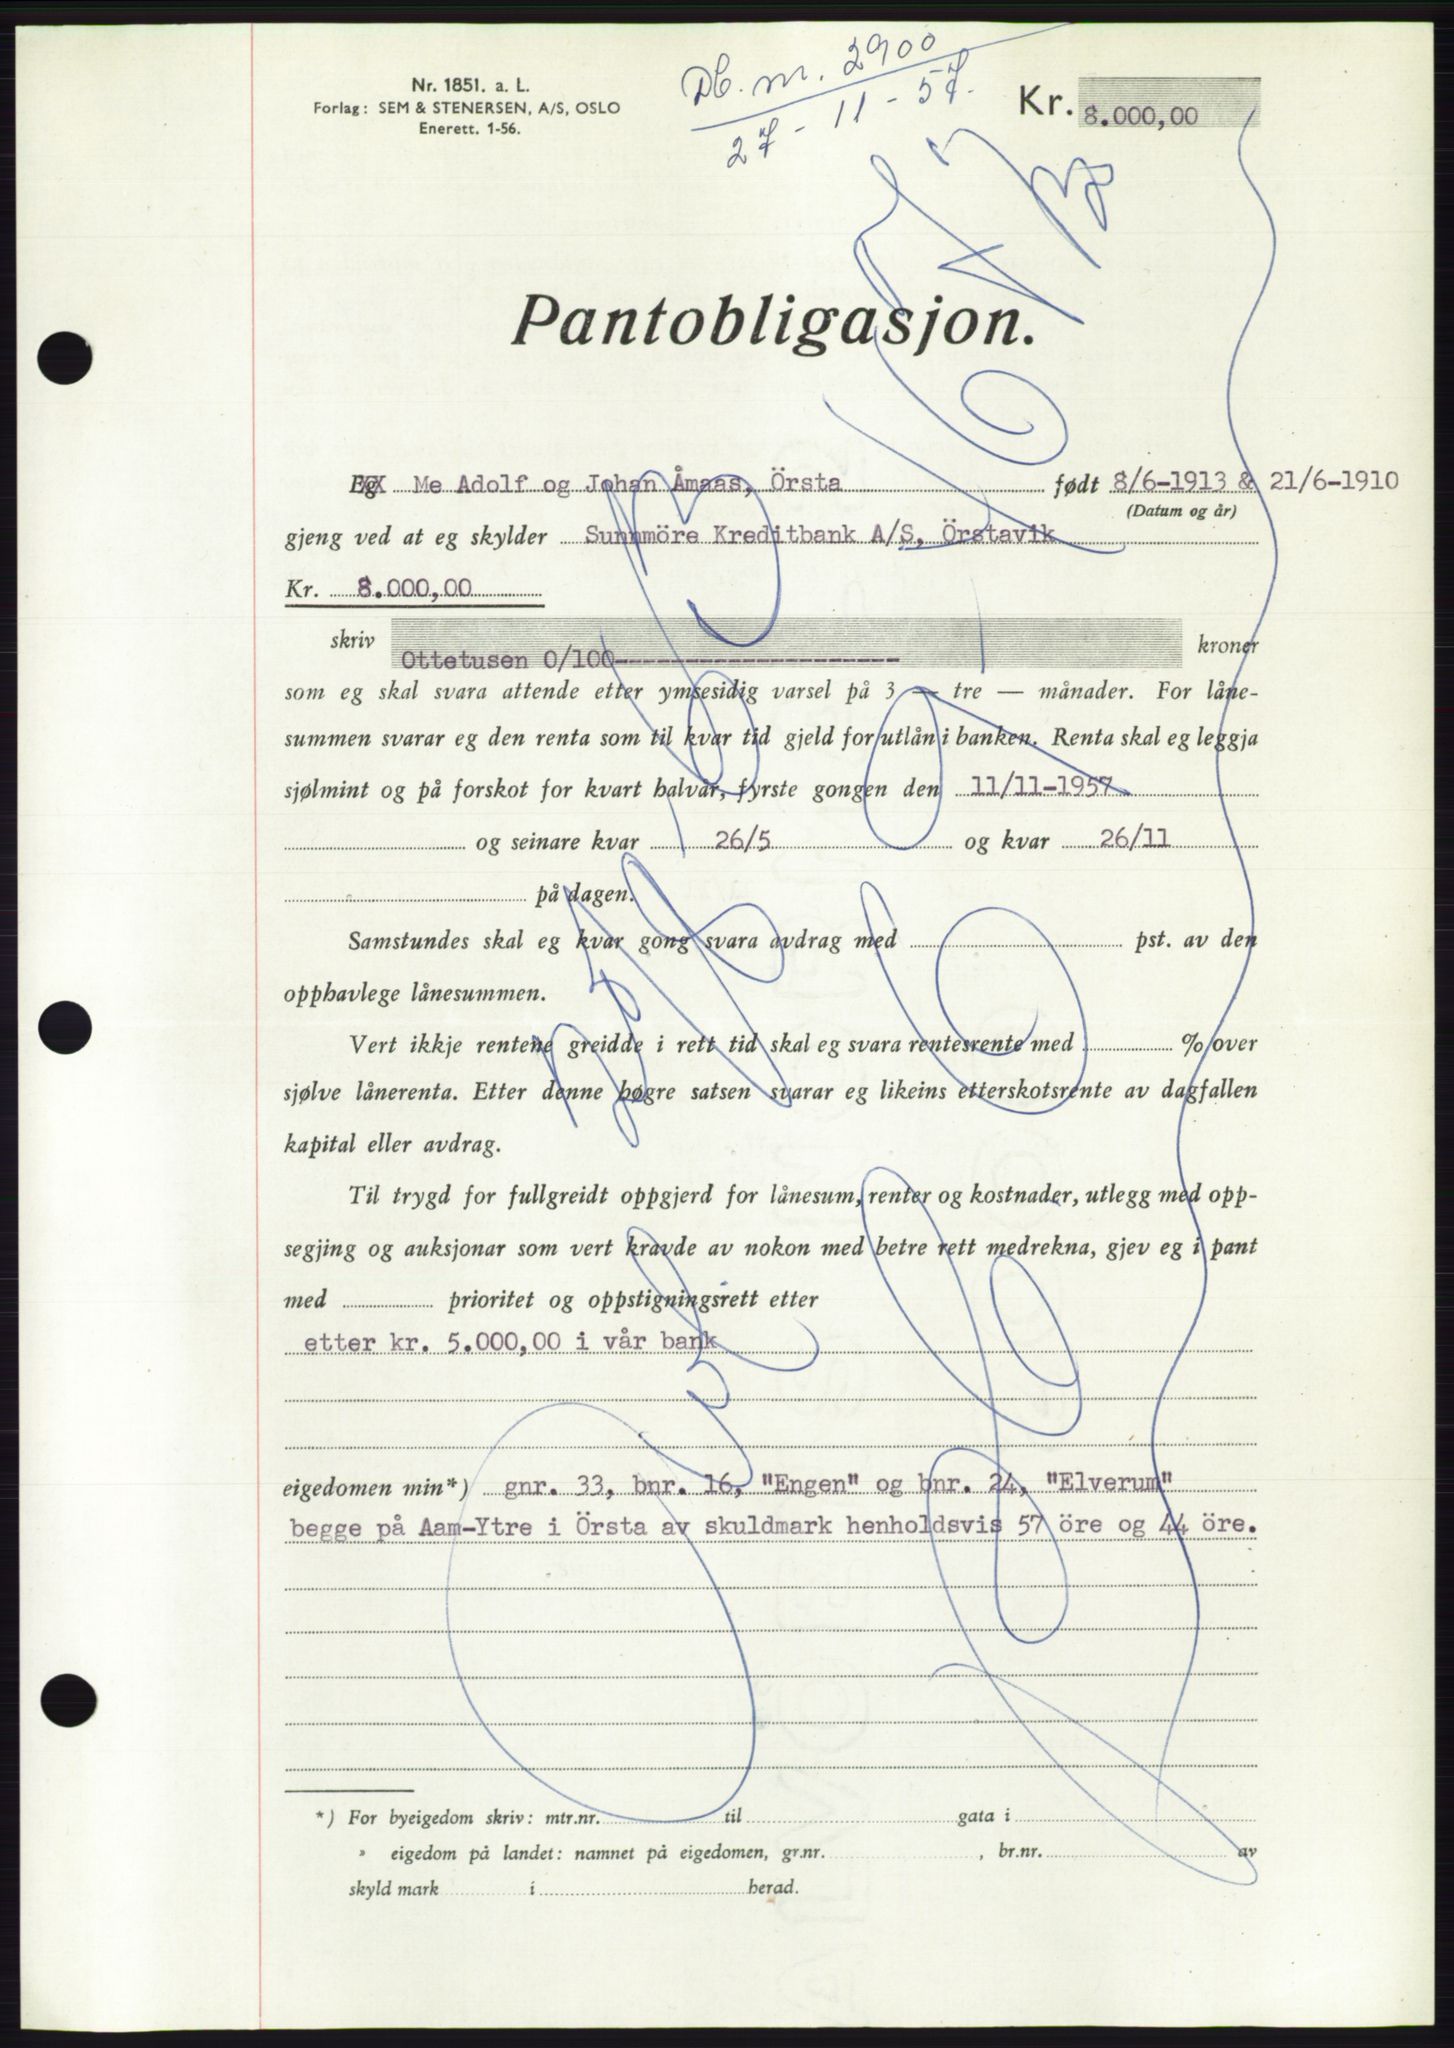 Nr. 1851. a. L.
Forlag: SEM & STENERSEN, A/S, OSLO
Enerett. 1-56.
Db. nr. 2900
27 - 11 - 57.
Kr. 8.000,00
Pantobligasjon.
Eg Me Adolf og Johan Åmaas, Örsta født 8/6-1913 & 21/6-1910
(Datum og år)
gjeng ved at eg skylder Sunnmöre Kreditbank A/S, Örstavik
Kr. 8.000,00
skriv Ottetusen 0/100-------------------- kroner
som eg skal svara attende etter ymsesidig varsel på 3 — tre — månader. For låne-
summen svarar eg den renta som til kvar tid gjeld for utlån i banken. Renta skal eg leggja
sjølmint og på forskot for kvart halvår, fyrste gongen den 11/11-1957
og seinare kvar 26/5 og kvar 26/11
på dagen.
Samstundes skal eg kvar gong svara avdrag med pst. av den
opphavlege lånesummen.
Vert ikkje rentene greidde i rett tid skal eg svara rentesrente med % over
sjølve lånerenta. Etter denne høgre satsen svarar eg likeins etterskotsrente av dagfallen
kapital eller avdrag.
Til trygd for fullgreidt oppgjerd for lånesum, renter og kostnader, utlegg med opp-
segjing og auksjonar som vert kravde av nokon med betre rett medrekna, gjev eg i pant
med prioritet og oppstigningsrett etter
etter kr. 5.000,00 i vår bank
eigedomen min*) gnr. 33, bnr. 16, "Engen" og bnr. 24, "Elverum"
begge på Aam-Ytre i Örsta av skuldmark henholdsvis 57 öre og 44 öre.
*) For byeigedom skriv: mtr.nr. til gata i
» eigedom på landet: namnet på eigedomen, gr.nr. , br.nr. av
skyld mark i herad.